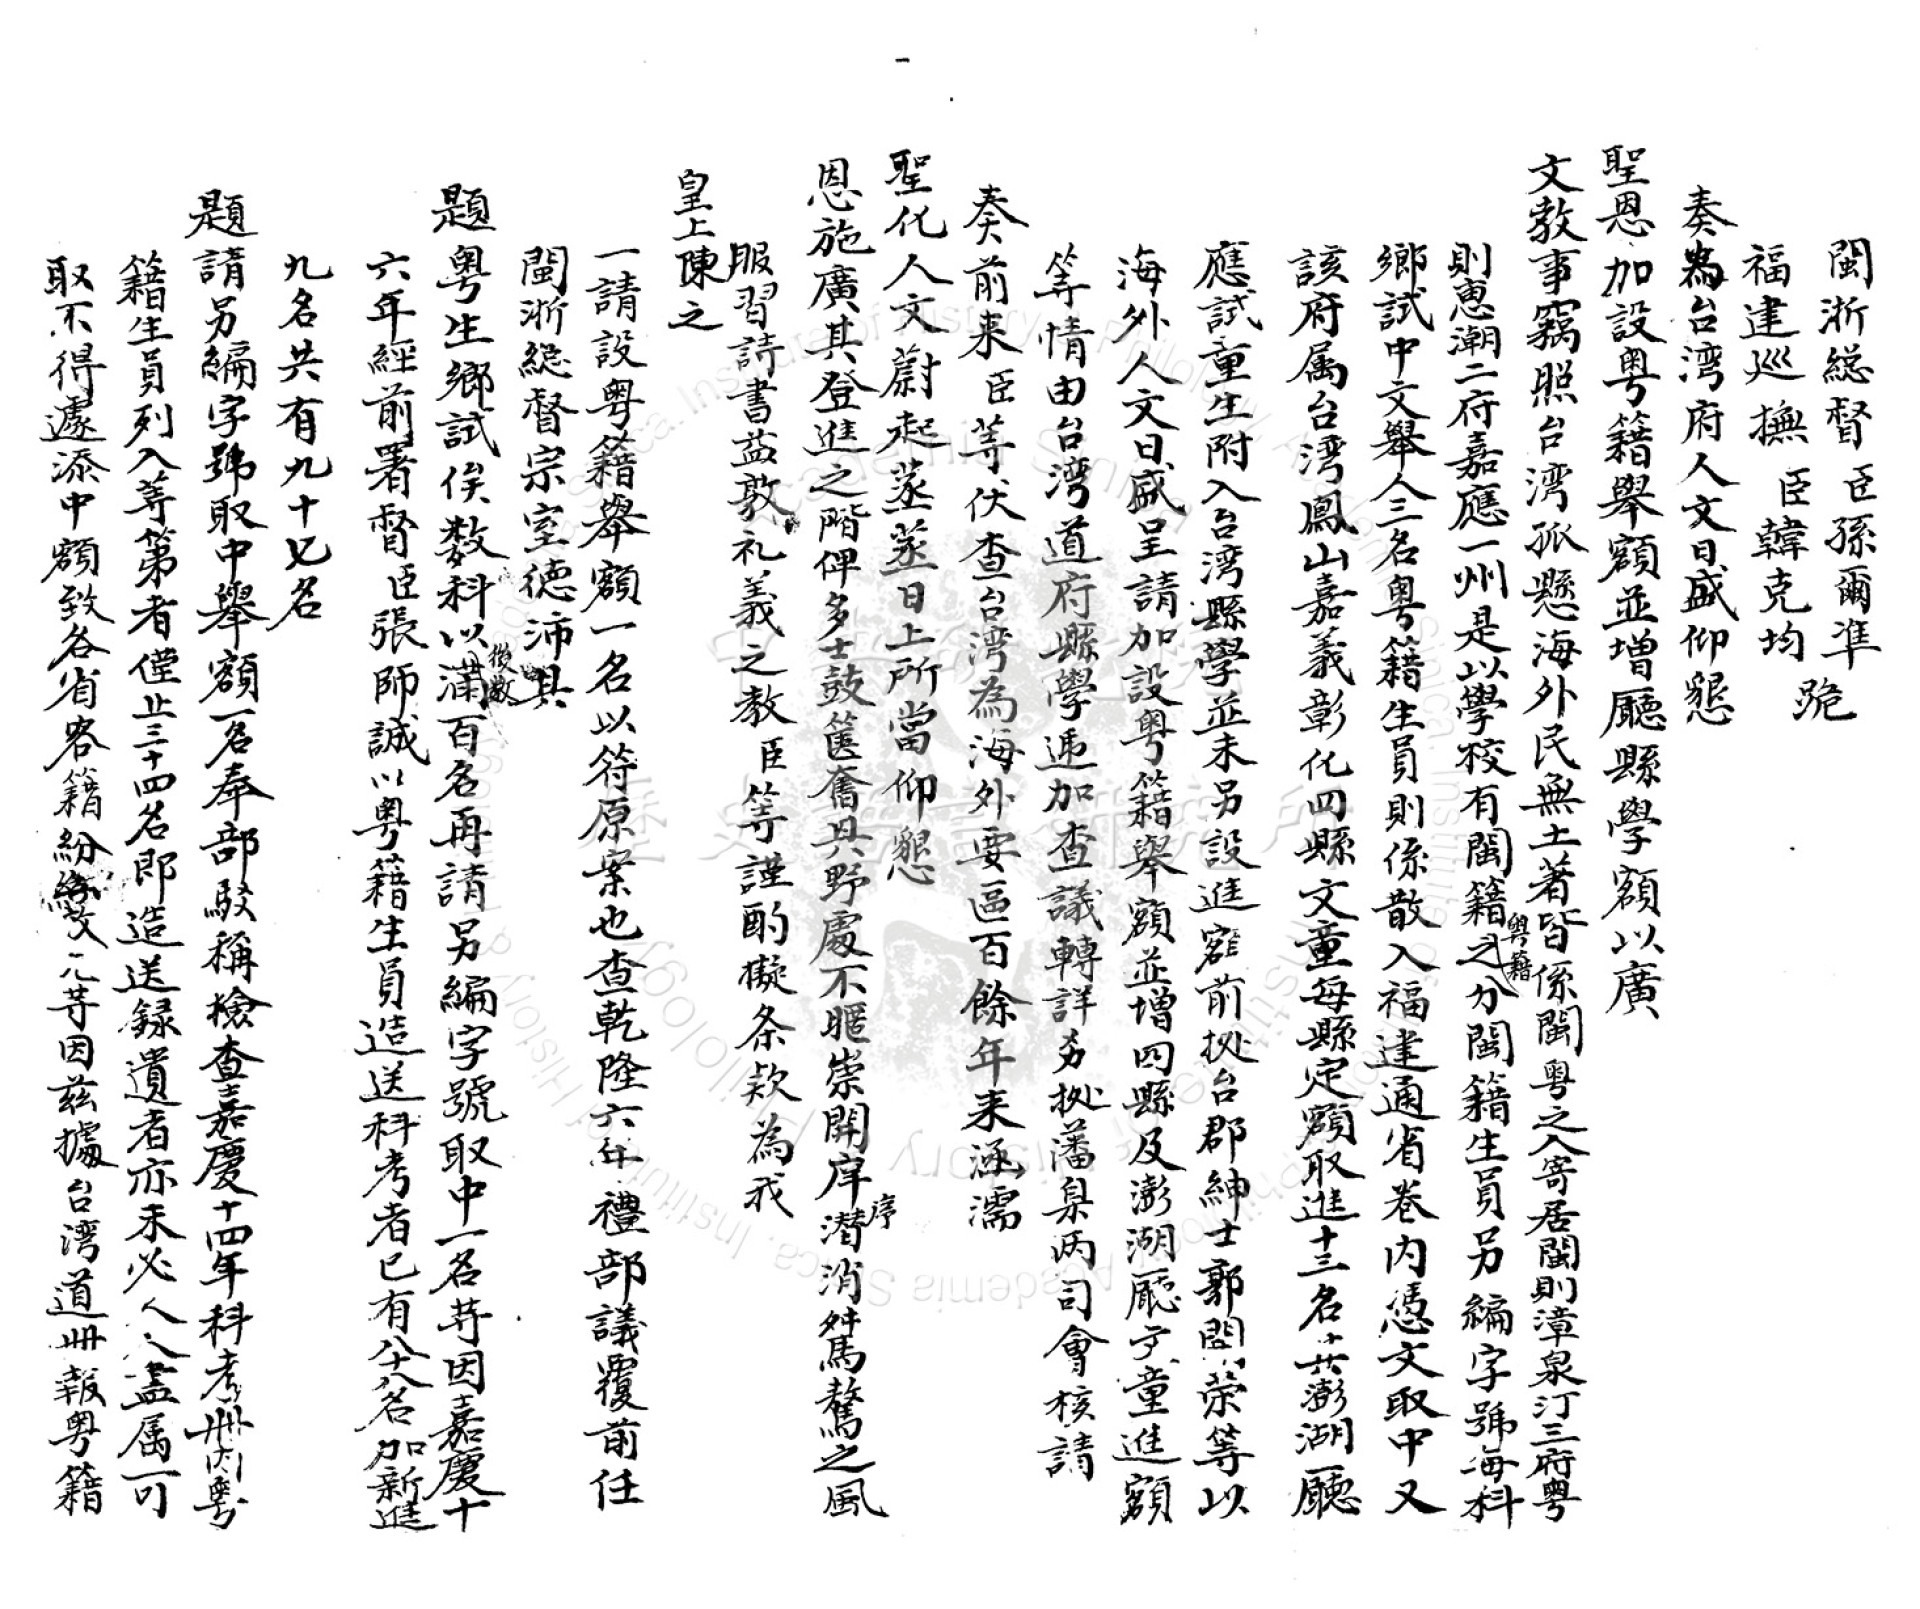 閩浙総督臣孫爾準
福建巡撫臣韓克均 跪
奏為台湾府人文日盛仰懇
聖恩加設粤籍舉額並増廳縣學額以廣
文教事竊照台湾孤懸海外民無土著皆係閩粤之人寄居閩則漳泉汀三府粤
則惠潮二府嘉應一州是以學校有閩籍粤籍之分閩籍生員另編字號每科
鄉試中文舉人三名粤籍生員則係散入福建通省卷内憑文取中又
該府属台湾鳳山嘉義彰化四縣文童每縣定額取進十三名其澎湖廳
應試童生附入台湾縣學並未另設進額前拠台郡紳士郭開榮等以
海外人文日盛呈請加設粤籍舉額並増四縣及澎湖廳文童進額
等情由台湾道府縣學遞加查議轉詳夛拠藩臬両司會核請
奏前来臣等伏查台湾為海外要區百餘年来涵濡
聖化人文蔚起蒸蒸日上所當仰懇
恩施廣其登進之階俾多士鼓篋奮興野處不匿崇開庠序潜消舛騖之風
服習詩書益敦礼義之教臣等謹酌擬条款為我
皇上陳之
一請設粤籍舉額一名以符原案也查乾隆六年禮部議覆前任
閩浙総督宗室德沛具
題粤生鄉試俟数科以後数満百名再請另編字號取中一名等因嘉慶十
六年經前署督臣張師誠以粤籍生員造送科考者已有八十八名加新進
九名共有九十七名
題請另編字號取中舉額一名奉部駁稱檢查嘉慶十四年科考冊内粤
籍生員列入等第者僅止三十四名即造送録遺者亦未必人人盡属可
取不得遽添中額致各省客籍紛紛效尤等因兹據台湾道冊報粤籍